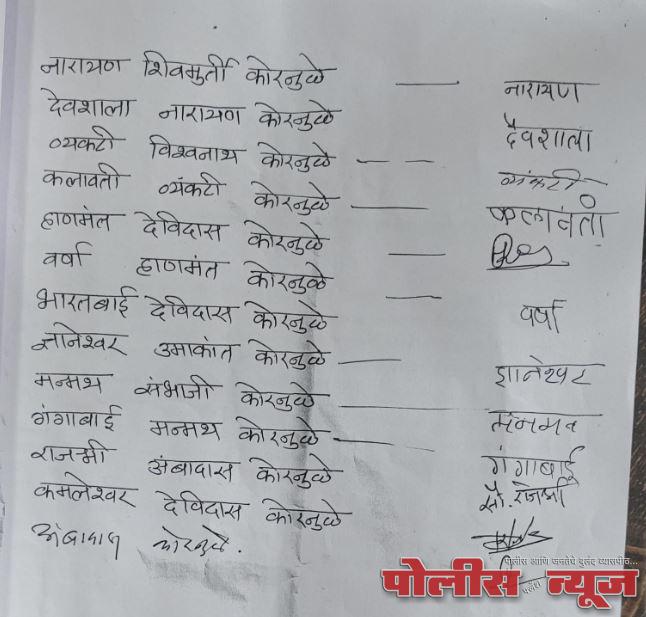 नारायण शिवमुर्ती कोरनुळे — नारायण
देवशाला नारायण कोरनुळे दैवशाला
व्यकटी विश्वनाथ कोरनुळे — — व्यंकटी
कलावती व्यंकटी कोरनुळे — कलावती
हाणमंत देविदास कोरनुळे —
वर्षा हाणमंत कोरनुळे — वर्षा
भारतबाई देविदास कोरनुळे
ज्ञानेश्वर उमाकांत कोरनुळे — ज्ञानेश्वर
मन्मथ संभाजी कोरनुळे — मनमथ
गंगाबाई मन्मथ कोरनुळे — गंगाबाई
राजश्री अंबादास कोरनुळे सौ. राजश्री
कमलेश्वर देविदास कोरनुळे
अंबादास कोरनुळे.
पोलीस आणि जनतेचे बुलंद व्यासपीठ...
पोलीस न्यूज